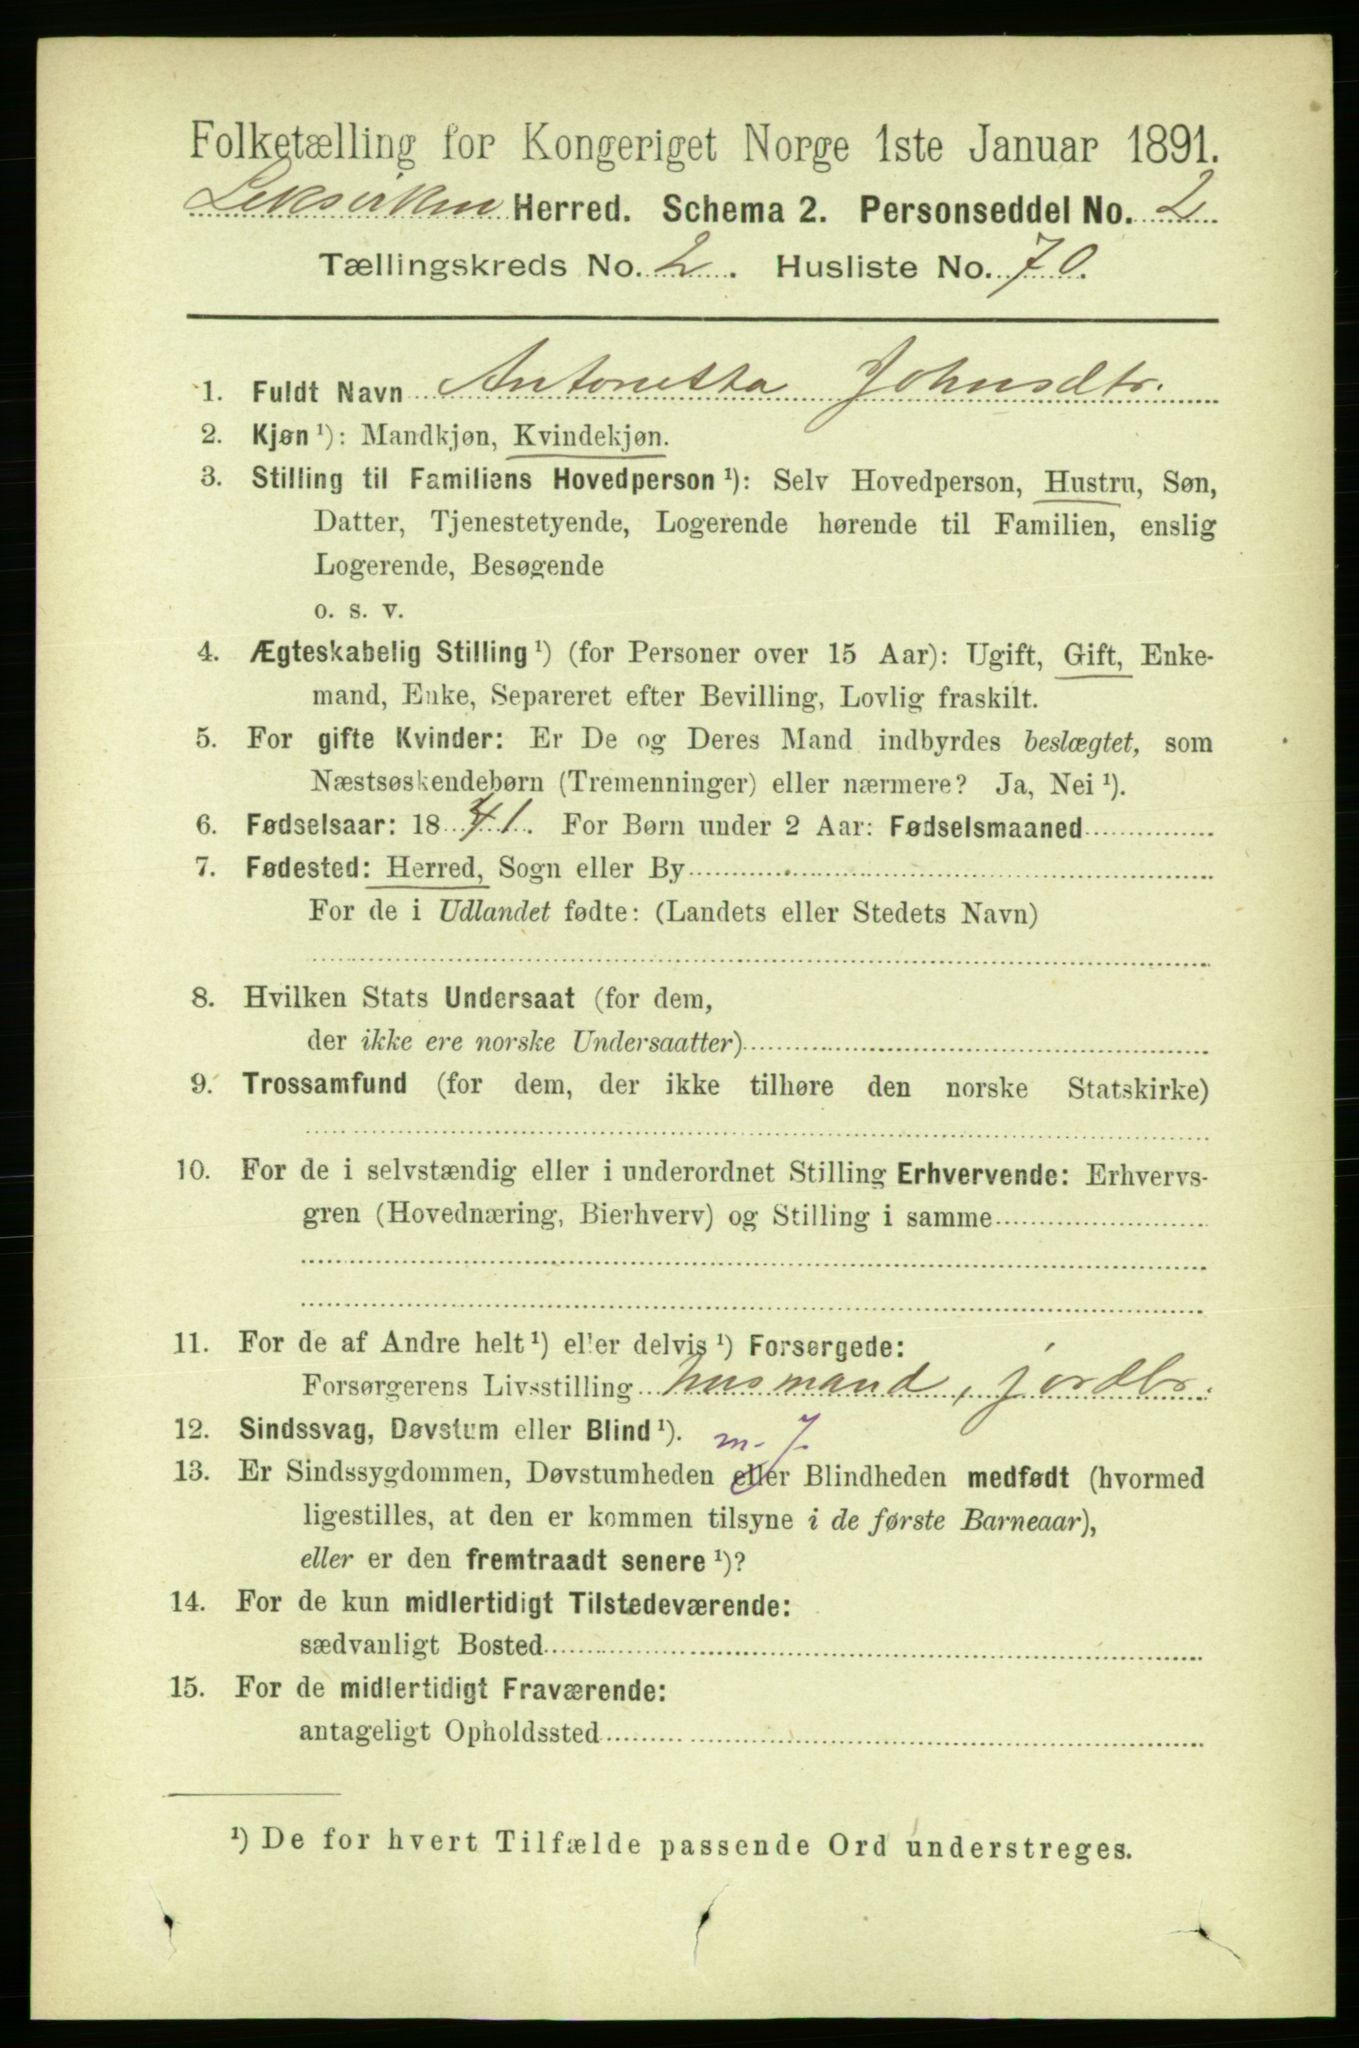 Folketælling for Kongeriget Norge 1ste Januar 1891.
Leksviken Herred. Schema 2. Personseddel No. 2
Tællingskreds No. 2. Husliste No. 70.
1. Fuldt Navn Antonetta Johnsdtr.
2. Kjøn ¹): Mandkjøn, Kvindekjøn.
3. Stilling til Familiens Hovedperson ¹): Selv Hovedperson, Hustru, Søn,
Datter, Tjenestetyende, Logerende hørende til Familien, enslig
Logerende, Besøgende
o. s. v.
4. Ægteskabelig Stilling ¹) (for Personer over 15 Aar): Ugift, Gift, Enke-
mand, Enke, Separeret efter Bevilling, Lovlig fraskilt.
5. For gifte Kvinder: Er De og Deres Mand indbyrdes beslægtet, som
Næstsøskendebørn (Tremenninger) eller nærmere? Ja, Nei ¹).
6. Fødselsaar: 1841. For Børn under 2 Aar: Fødselsmaaned
7. Fødested: Herred, Sogn eller By
For de i Udlandet fødte: (Landets eller Stedets Navn)
8. Hvilken Stats Undersaat (for dem,
der ikke ere norske Undersaatter)
9. Trossamfund (for dem, der ikke tilhøre den norske Statskirke)
10. For de i selvstændig eller i underordnet Stilling Erhvervende: Erhvervs-
gren (Hovednæring, Bierhverv) og Stilling i samme
11. For de af Andre helt ¹) eller delvis ¹) Forsørgede:
Forsørgerens Livsstilling husmand, jordbr.
12. Sindssvag, Døvstum eller Blind ¹).
m. J.
13. Er Sindssygdommen, Døvstumheden eller Blindheden medfødt (hvormed
ligestilles, at den er kommen tilsyne i de første Barneaar),
eller er den fremtraadt senere ¹)?
14. For de kun midlertidigt Tilstedeværende:
sædvanligt Bosted
15. For de midlertidigt Fraværende:
antageligt Opholdssted
¹) De for hvert Tilfælde passende Ord understreges.